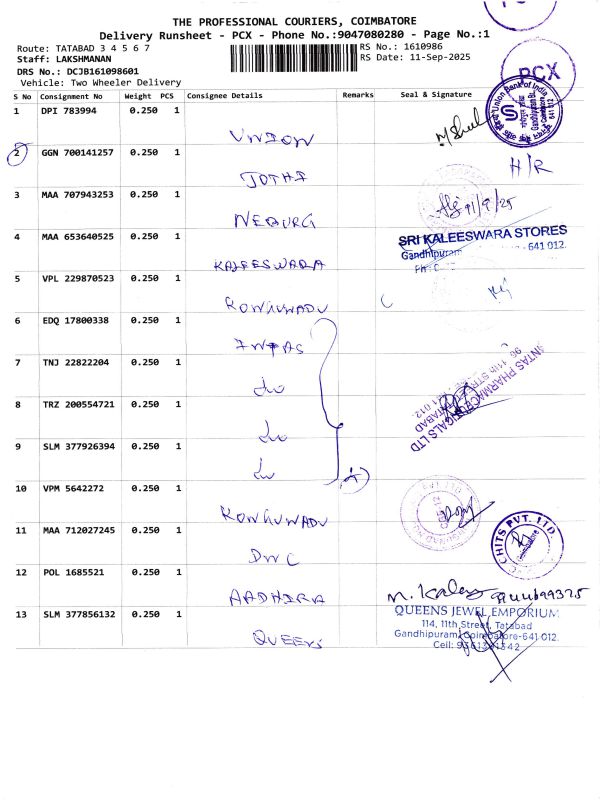 THE PROFESSIONAL COURIERS, COIMBATORE
Delivery Runsheet - PCX - Phone No.:9047080280 - Page No.:1
Route: TATABAD 3 4 5 6 7
RS No.: 1610986
Staff: LAKSHMANAN
RS Date: 11-Sep-2025
DRS No.: DCJB161098601
Vehicle: Two Wheeler Delivery
PCX
S No Consignment No Weight PCS Consignee Details Remarks Seal & Signature
1 DPI 783994 0.250 1 UNION
Union Bank of India
2 GGN 700141257 0.250 1 JOTHI H/R
3 MAA 707943253 0.250 1 NEBURG 11/9/25
4 MAA 653640525 0.250 1 KALEESWARA
SRI KALEESWARA STORES
Gandhipuram 641 012.
5 VPL 229870523 0.250 1 KONGUNADU
6 EDQ 17800338 0.250 1 INTAS
7 TNJ 22822204 0.250 1
8 TRZ 200554721 0.250 1
9 SLM 377926394 0.250 1
10 VPM 5642272 0.250 1 KONGUNADU
11 MAA 712027245 0.250 1 DNC
CHITS PVT. LTD.
12 POL 1685521 0.250 1 AADHIRA
13 SLM 377856132 0.250 1 QUEENS
QUEENS JEWEL EMPORIUM
114, 11th Street, Tatabad
Gandhipuram, Coimbatore-641 012.